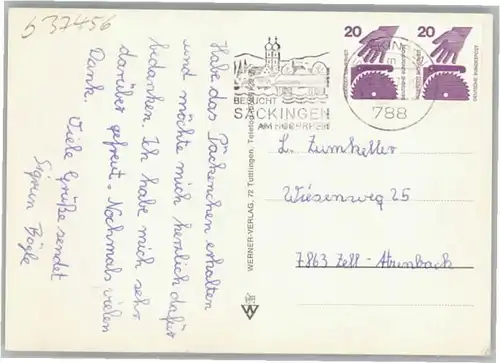 b 37456
Habe das Päckenchen erhalten
und möchte mich herzlich dafür
bedanken. Ich habe mich sehr
darüber gefreut. Nochmals vielen
Dank.
Viele Grüße sendet
Sigrun Bögle
WERNER-VERLAG, 72 Tuttlingen, Telefon
W
BESUCHT
SÄCKINGEN
AM HOCHRHEIN
788
20
DEUTSCHE BUNDESPOST
20
DEUTSCHE BUNDESPOST
L. Zumkeller
Wiesenweg 25
7863 Zell - Atzenbach